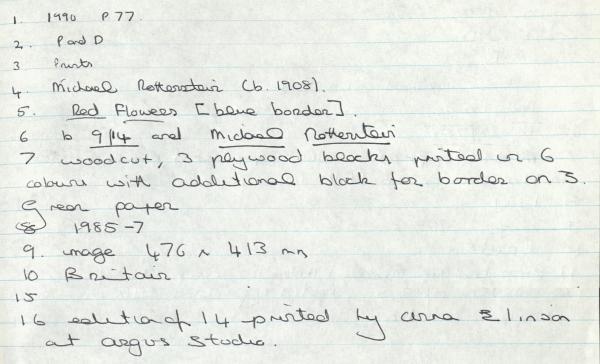 1. 1990 P77.
2. P and D
3 Prints
4. Michael Rothenstein (b. 1908).
5. Red Flowers [blue border].
6 b 9/14 and Michael Rothenstein
7 woodcut, 3 plywood blocks printed in 6
colours with additional block for border on J.
Green paper
8 1985-7
9. image 476 x 413 mm
10 Britain
15
16 edition of 14 printed by
at argus studio.